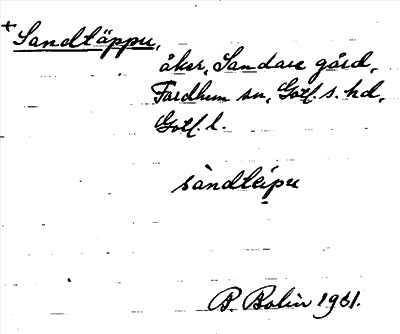 + Sandtäppu,
åker, Sandare gård,
Fardhem sn, Gotl. s. hd,
Gotl. l.
sàndtèipu
B. Bolin 1961.